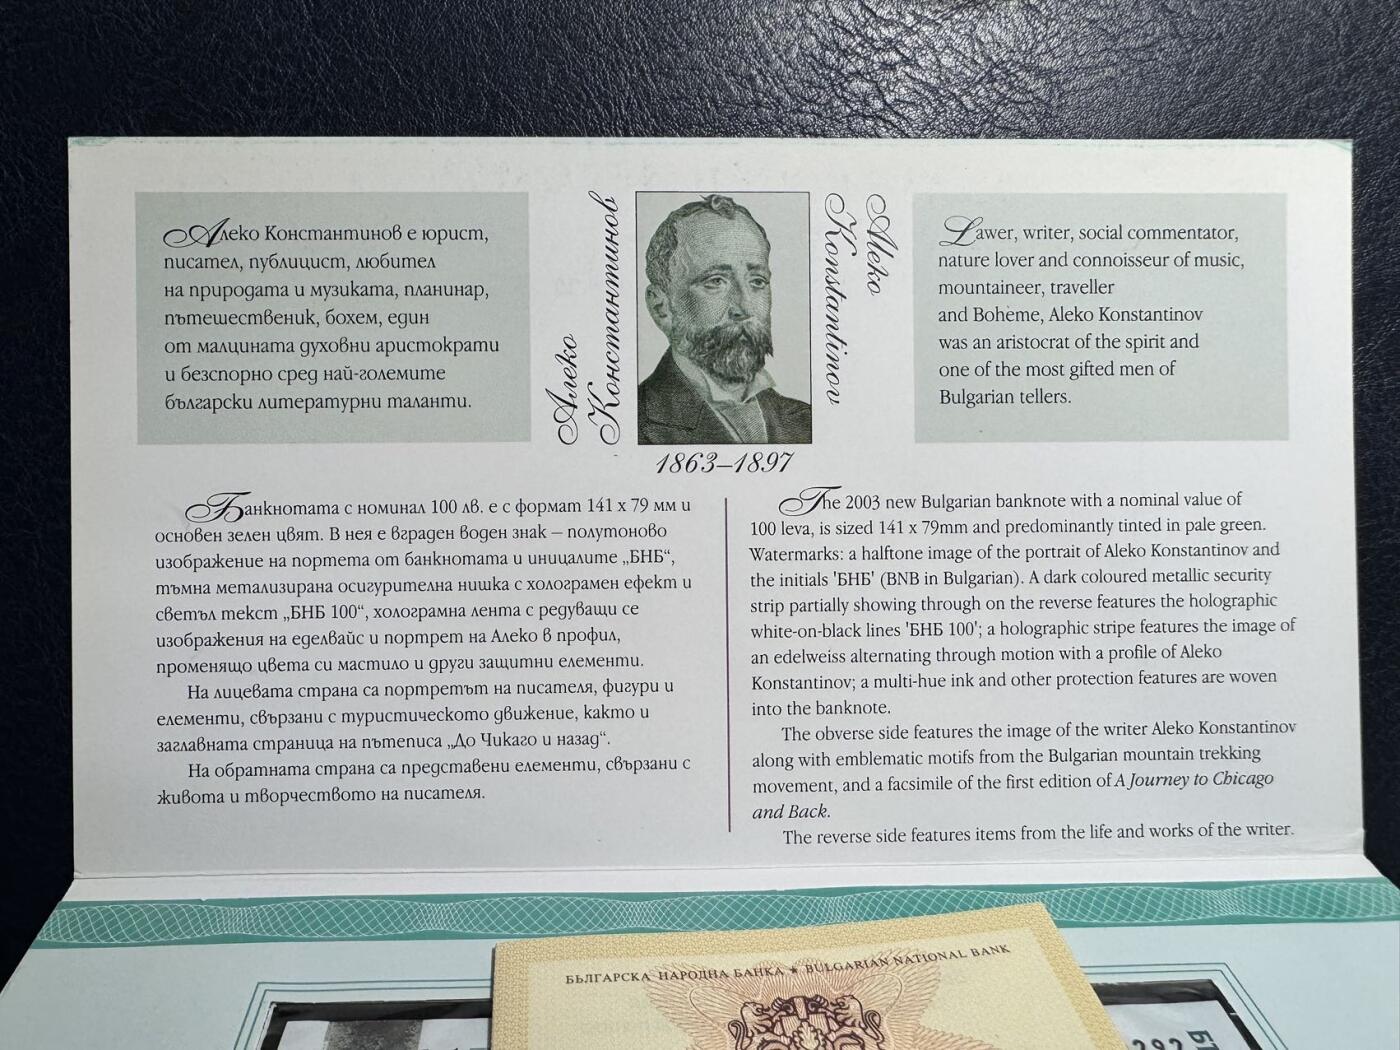 Алеко Константинов е юрист,
писател, публицист, любител
на природата и музиката, планинар,
пътешественик, бохем, един
от малцината духовни аристократи
и безспорно сред най-големите
български литературни таланти.
Алеко
Константинов
Aleko
Konstantinov
1863–1897
Lawer, writer, social commentator,
nature lover and connoisseur of music,
mountaineer, traveller
and Boheme, Aleko Konstantinov
was an aristocrat of the spirit and
one of the most gifted men of
Bulgarian tellers.
Банкнотата с номинал 100 лв. е с формат 141 x 79 мм и
основен зелен цвят. В нея е вграден воден знак – полутоново
изображение на портета от банкнотата и инициалите „БНБ“,
тъмна метализирана осигурителна нишка с холограмен ефект и
светъл текст „БНБ 100“, холограмна лента с редуващи се
изображения на еделвайс и портрет на Алеко в профил,
променящо цвета си мастило и други защитни елементи.
На лицевата страна са портретът на писателя, фигури и
елементи, свързани с туристическото движение, както и
заглавната страница на пътеписа „До Чикаго и назад“.
На обратната страна са представени елементи, свързани с
живота и творчеството на писателя.
The 2003 new Bulgarian banknote with a nominal value of
100 leva, is sized 141 x 79mm and predominantly tinted in pale green.
Watermarks: a halftone image of the portrait of Aleko Konstantinov and
the initials 'БНБ' (BNB in Bulgarian). A dark coloured metallic security
strip partially showing through on the reverse features the holographic
white-on-black lines 'БНБ 100'; a holographic stripe features the image of
an edelweiss alternating through motion with a profile of Aleko
Konstantinov; a multi-hue ink and other protection features are woven
into the banknote.
The obverse side features the image of the writer Aleko Konstantinov
along with emblematic motifs from the Bulgarian mountain trekking
movement, and a facsimile of the first edition of A Journey to Chicago
and Back.
The reverse side features items from the life and works of the writer.
БЪЛГАРСКА НАРОДНА БАНКА ★ BULGARIAN NATIONAL BANK